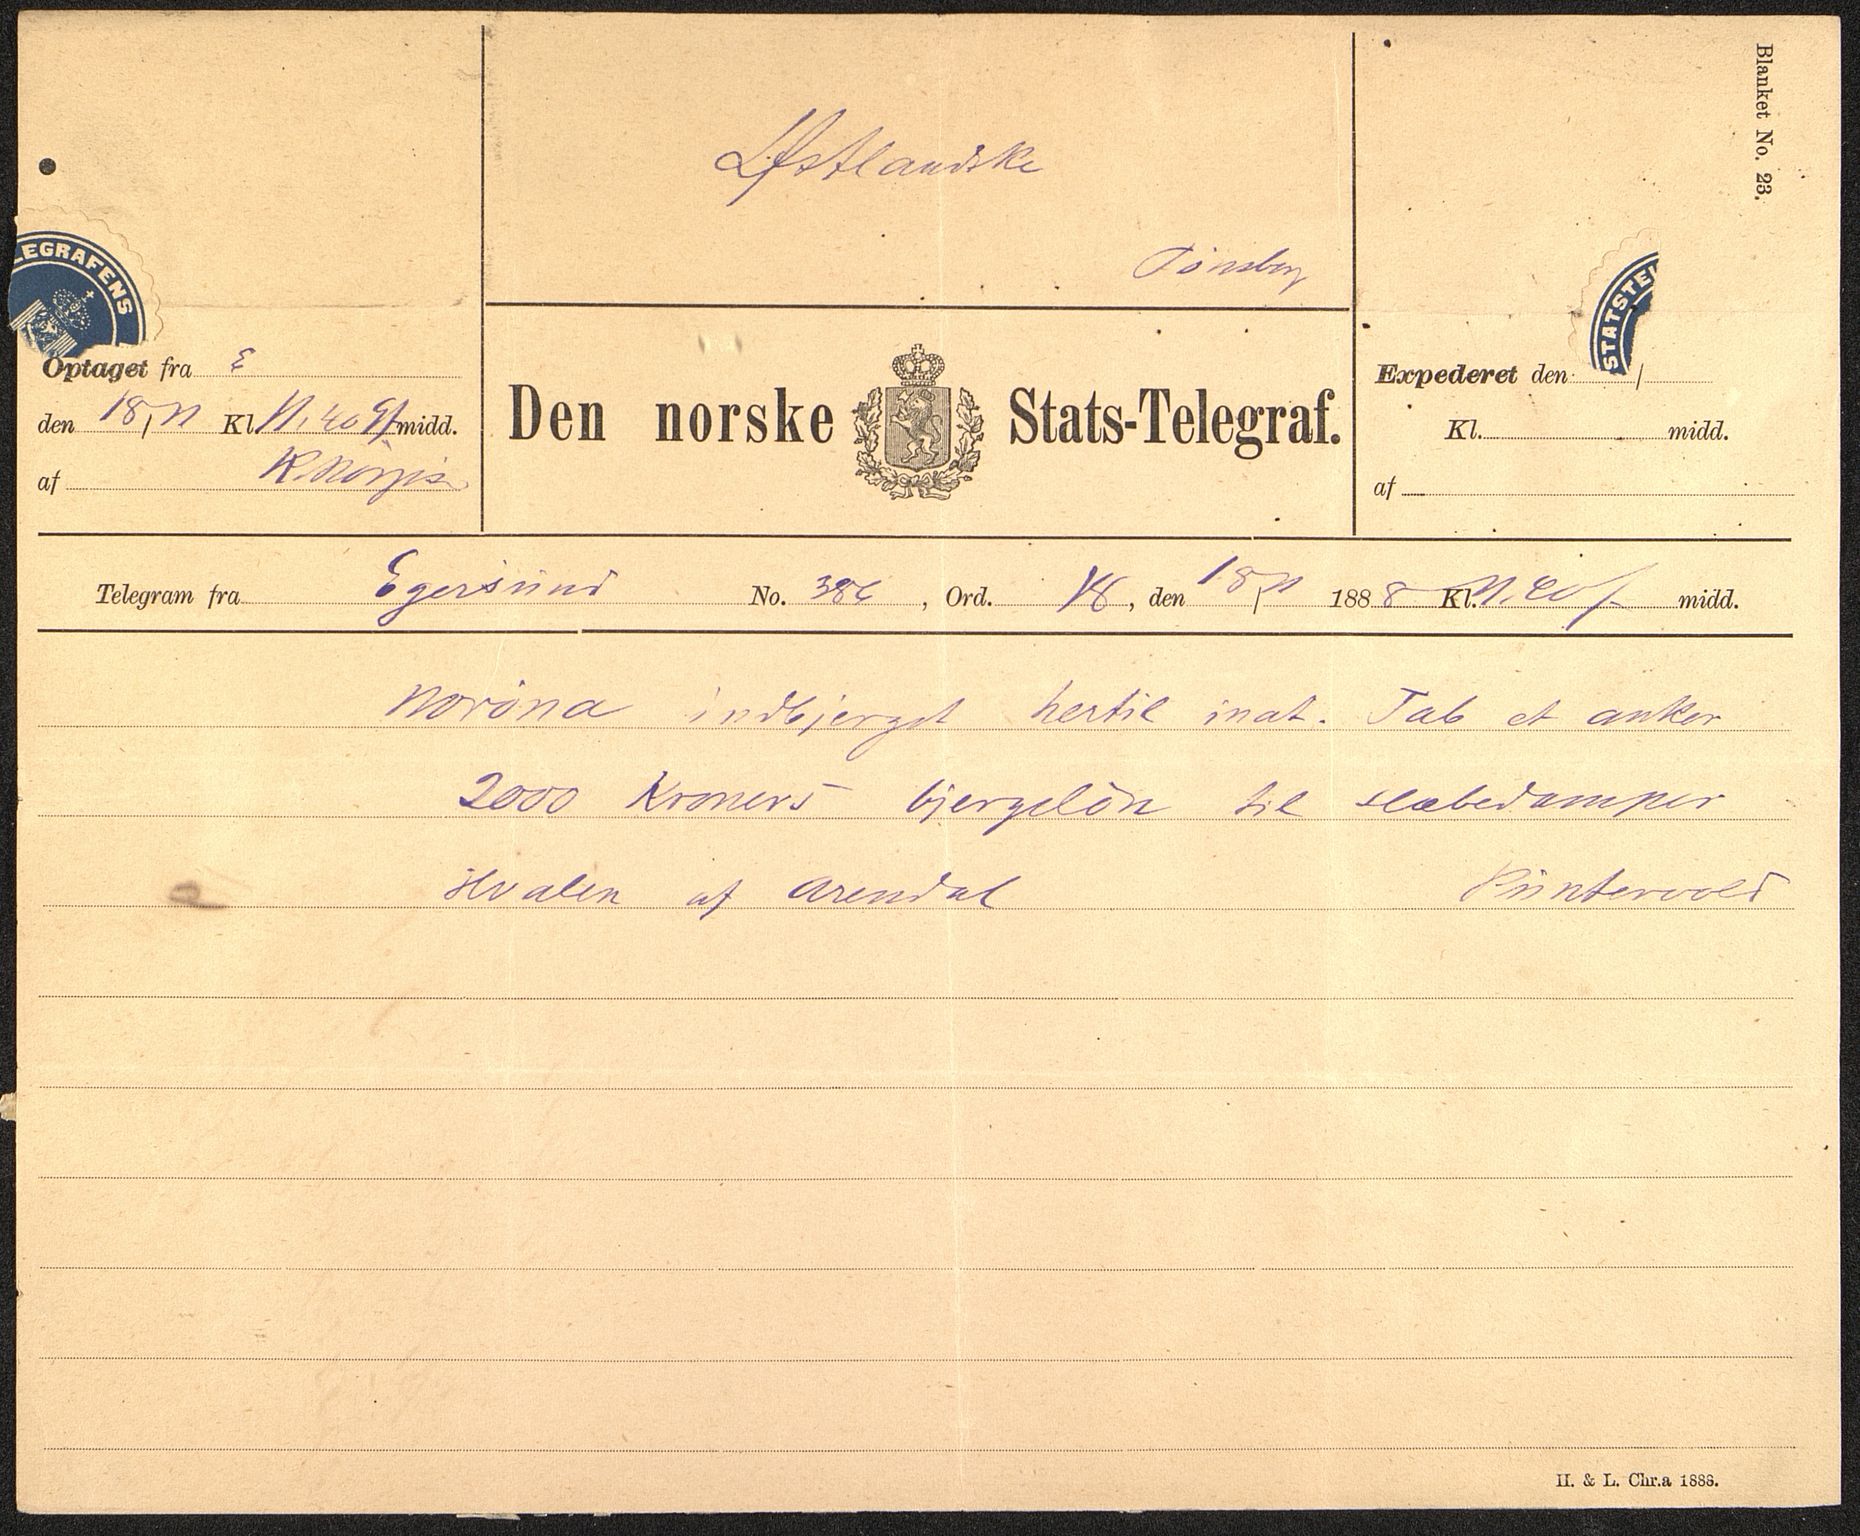 Blanket No. 23.
Østlandske
Tønsberg
TELEGRAFENS
STATSTE
Optaget fra E
den 18/11 Kl. 11,40 F midd.
af
Den norske Stats-Telegraf.
Expederet den /
Kl. midd.
af
Telegram fra Egersund No. 386, Ord. 18, den 18/11 1888 Kl. 11.20 f midd.
Norøna indbjerget hertil inat. Tab et anker
2000 Kroners bjergeløn til slæbedamper
Hvalen af Arendal Püntervold
H. & L. Chr.a 1888.